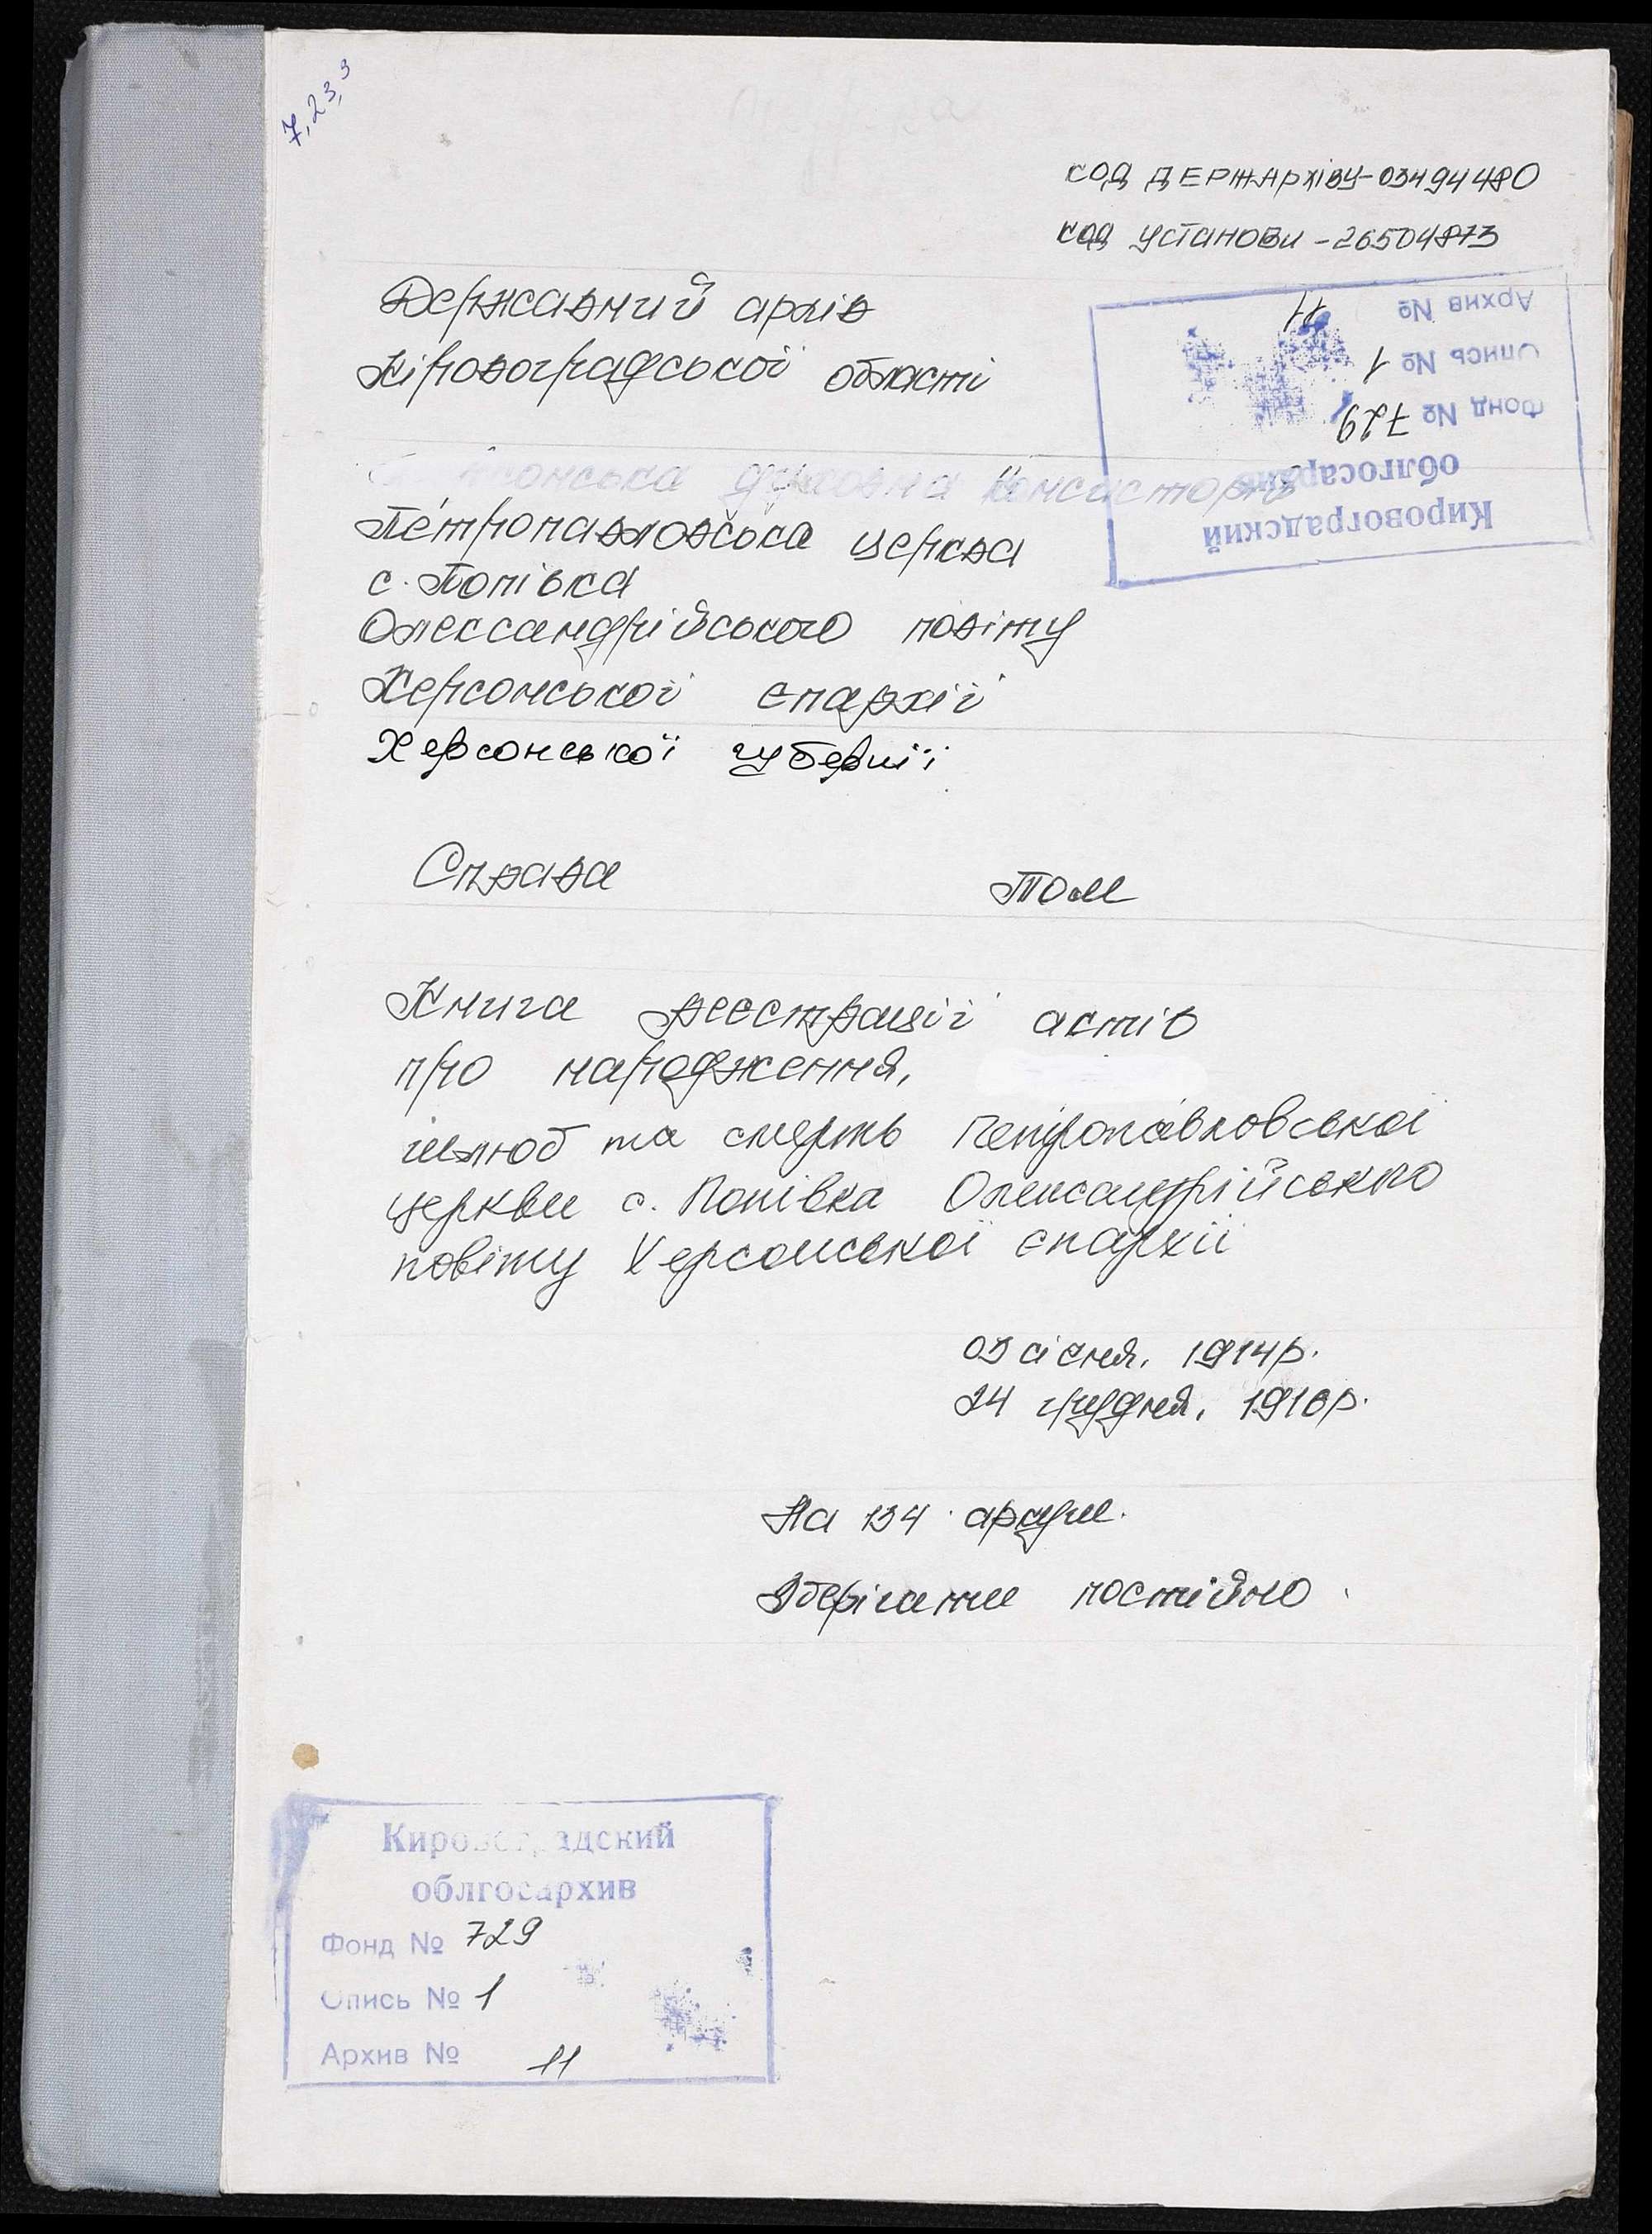 7,23,9
код ДЕРЖАРХіВУ-03494480
код УСТАНОВИ-26504873
Державний архів
Кіровоградської області
Кировоградский
облгосархив
Фонд № 729
Опись № 1
Архив № 11
духовна консисторія
Петропавловська церква
с. Попівка
Олександрійського повіту
Херсонської єпархії
Херсонської губернії
Справа Том
Книга реєстрації актів
про народження,
шлюб та смерть Петропавловської
церкви с. Попівка Олександрійського
повіту Херсонської єпархії
03 січня. 1914р.
24 грудня. 1916р.
На 134 аркуш.
Зберігати постійно
Кировоградский
облгосархив
Фонд № 729
Опись № 1
Архив № 11